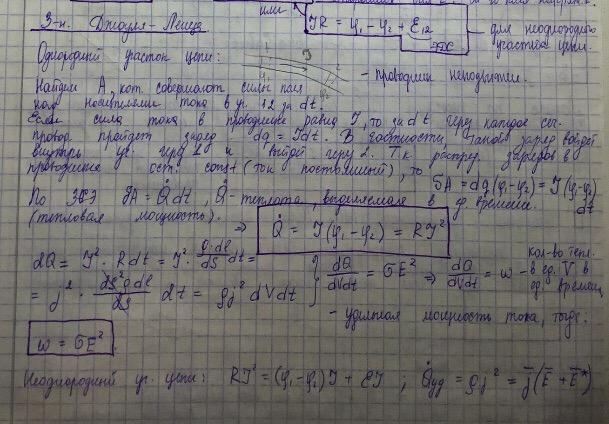 или
JR = φ₁ - φ₂ + Ɛ₁₂
- для неоднородного участка цепи.
З-н. Джоуля - Ленца
Однородный участок цепи:
- проводник неподвижен.
Найдём A, кот. совершают силы поля
над носителями тока в уч. 12 за dt.
Если сила тока в проводнике равна J, то за dt через каждое сеч.
провод. пройдет заряд dq = Jdt. В частности, такой заряд войдёт
внутрь уч. через 1 и выйдет через 2. Т.к. распред. зарядов в
проводнике ост. const (ток постоянный), то δA = dq(φ₁-φ₂) = J(φ₁-φ₂)dt
По ЗСЭ δA = Q̇dt, Q̇ - теплота, выделяемая в ед. времени
(тепловая мощность). ⇒ Q̇ = J(φ₁-φ₂) = RJ²
dQ = J²·Rdt = J²·ρ·dl/dS dt =
= j²·dS²ρdl/dS dt = ρj²dVdt
dQ/dVdt = σE² ⇒ dQ/dVdt = ω - кол-во тепл. в ед. V в ед. времени
- удельная мощность тока, тогда:
ω = σE²
Неоднородный уч. цепи: RJ² = (φ₁-φ₂)J + ƐJ ; Q̇уд = ρj² = j̄(Ē + Ē*)